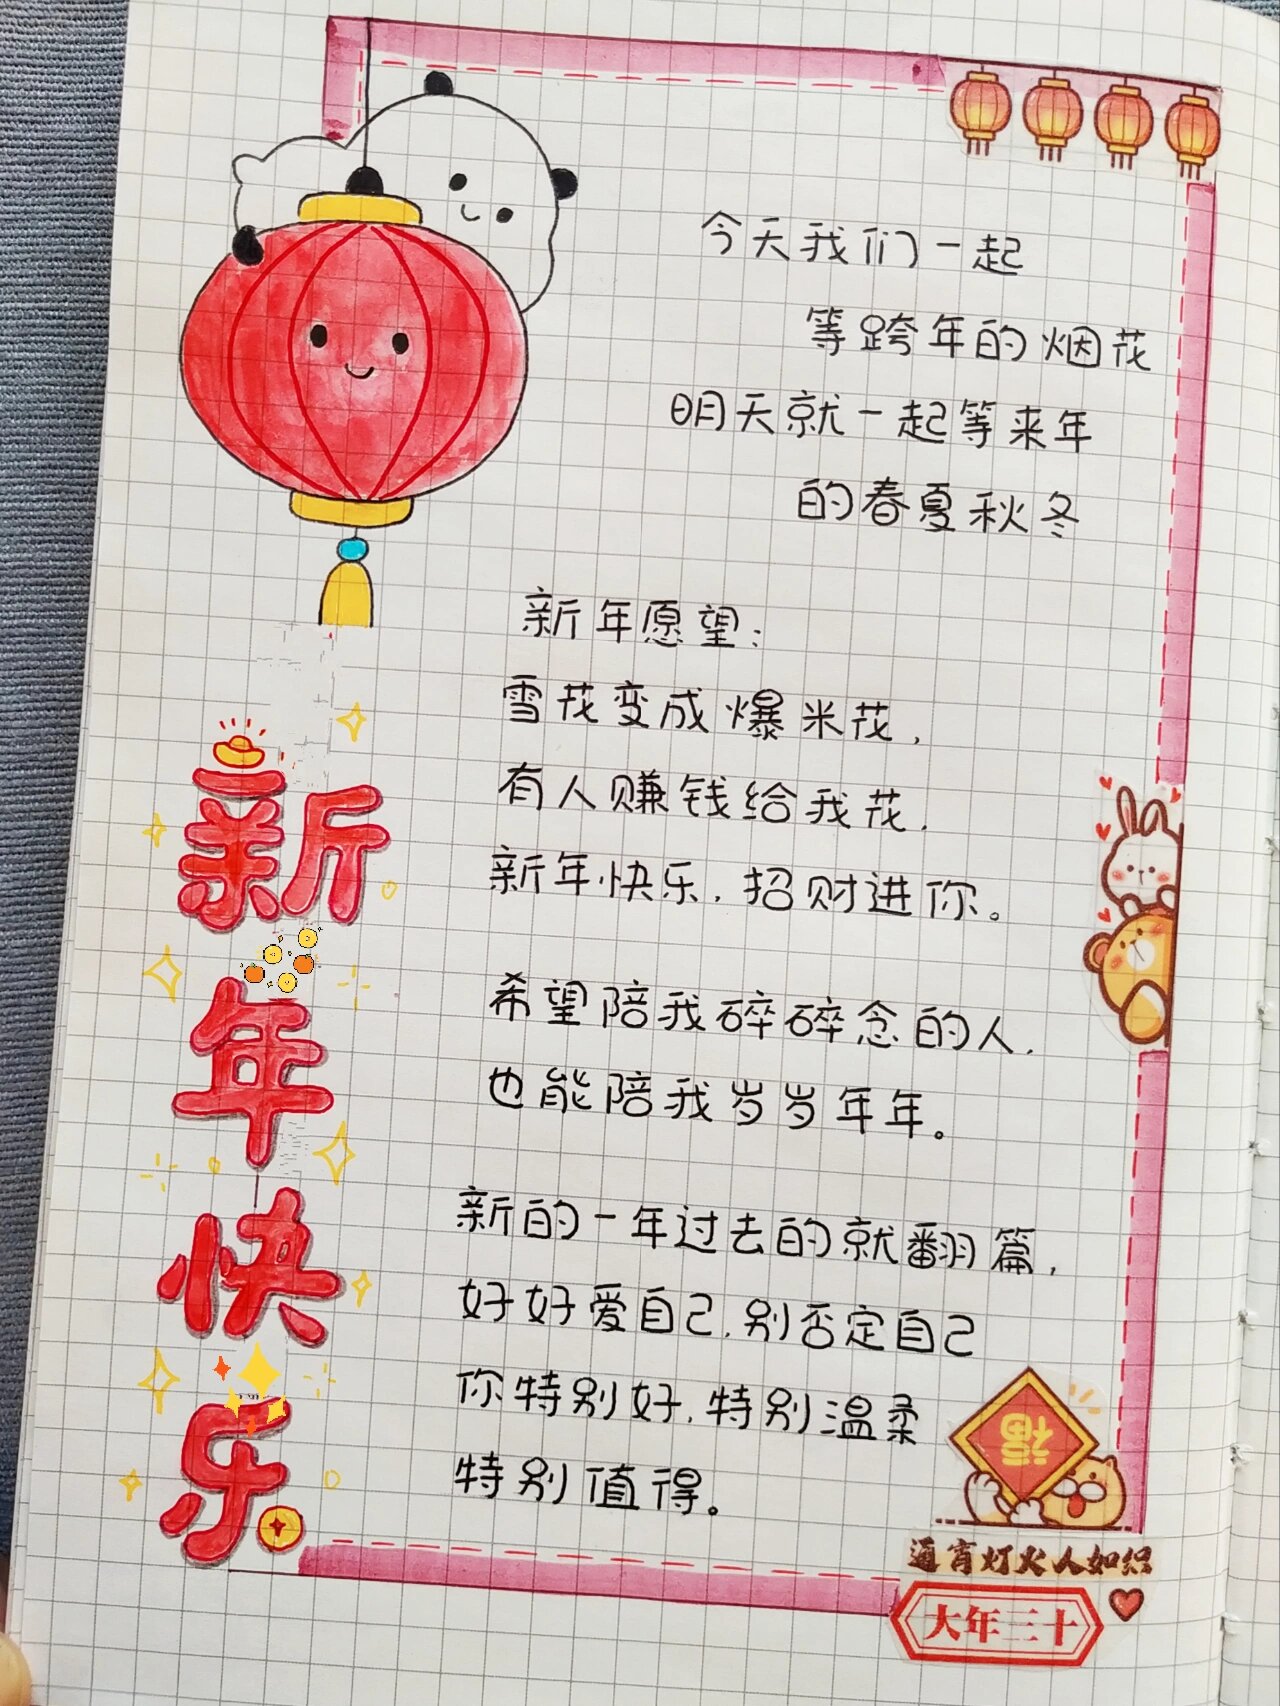 今天我们一起
等跨年的烟花
明天就一起等来年
的春夏秋冬
新年愿望:
雪花变成爆米花,
有人赚钱给我花,
新年快乐,招财进你。
希望陪我碎碎念的人,
也能陪我岁岁年年。
新的一年过去的就翻篇,
好好爱自己,别否定自己
你特别好,特别温柔
特别值得。
新
年
快
乐
福
通宵灯火人如织
大年三十